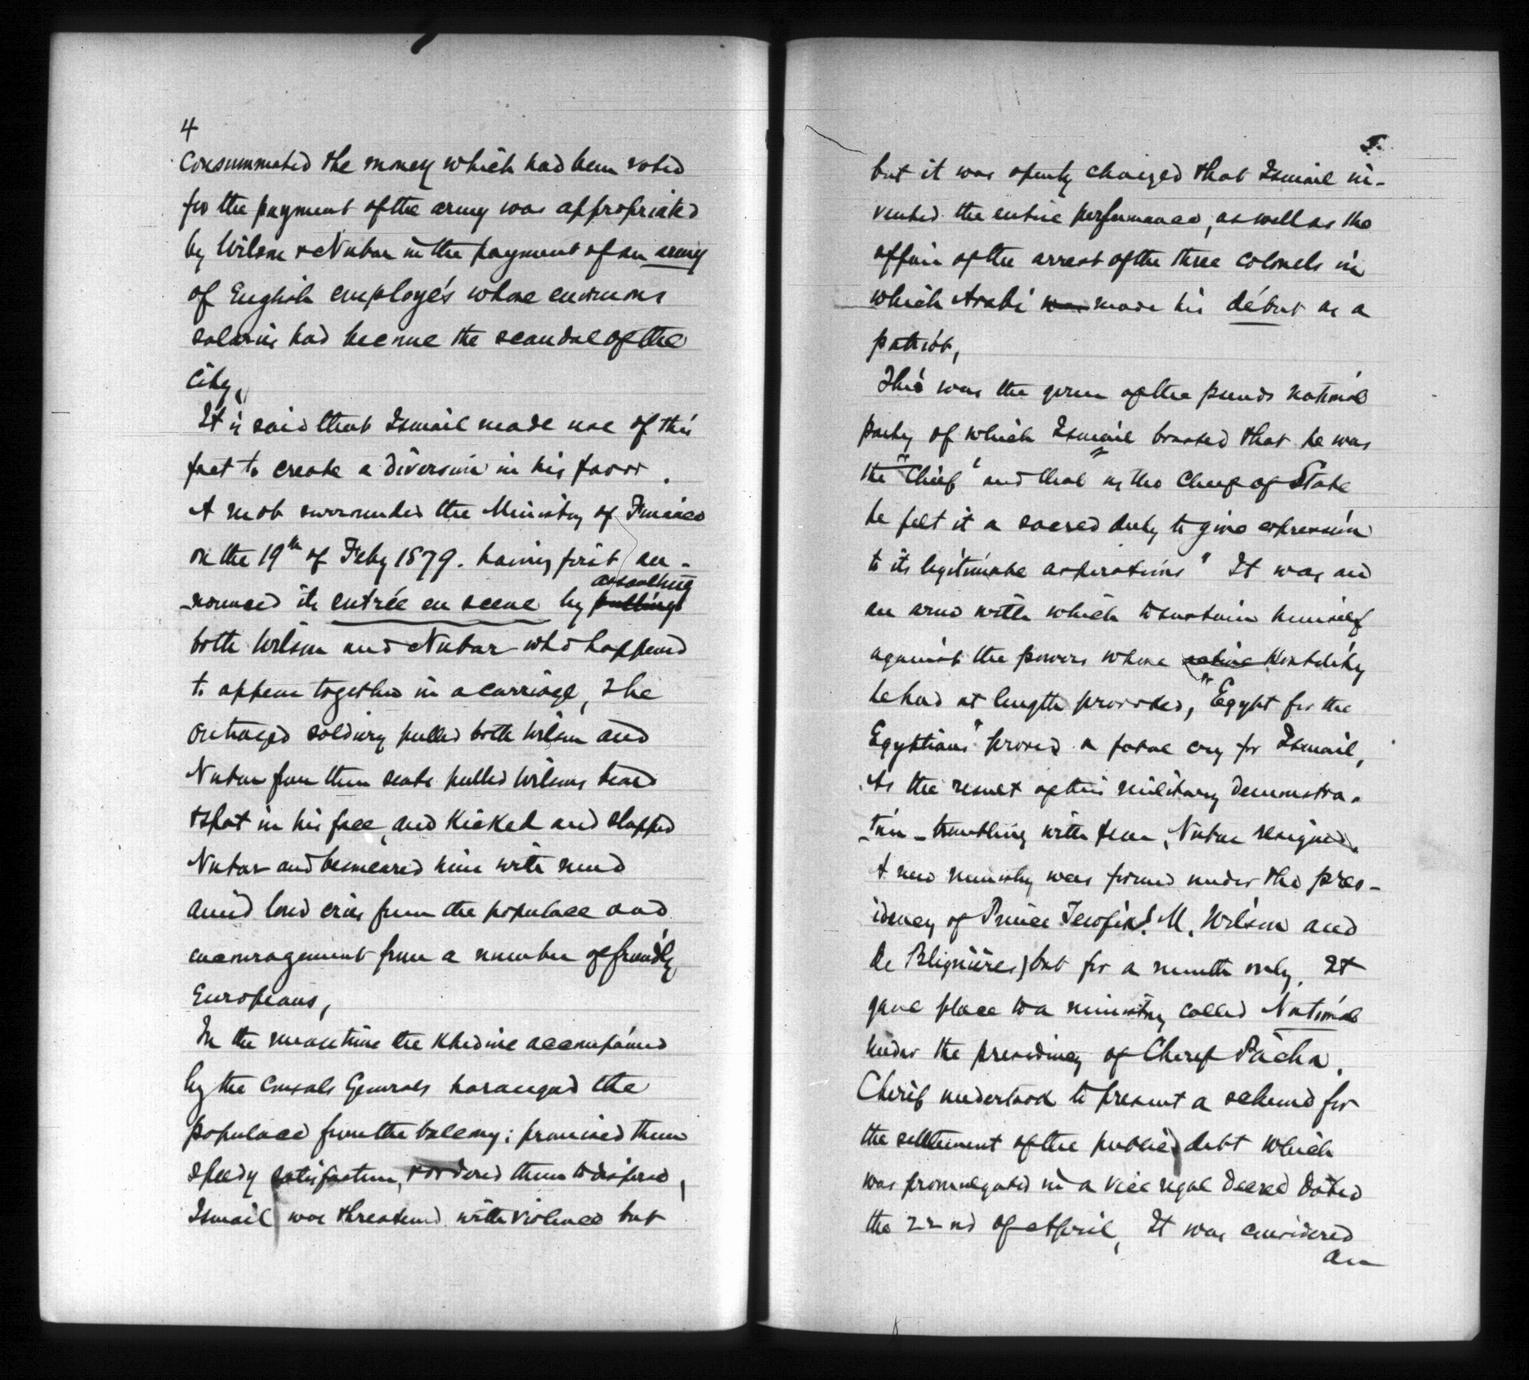 4
consummated the money which had been voted
for the payment of the army was appropriated
by Wilson & Nubar in the payment of an army
of English employés whose enormous
salaries had become the scandal of the
city,
It is said that Ismail made use of this
fact to create a diversion in his favor.
A mob surrounded the Ministry of Finance
on the 19th of Feby 1879. having first an-
assaulting
nounced its entrée en scene by pulling
both Wilson and Nubar who happened
to appear together in a carriage, The
outraged soldiery pulled both Wilson and
Nubar from their seats pulled Wilsons beard
& spat in his face, and kicked and slapped
Nubar and besmeared him with mud
amid loud cries from the populace and
encouragement from a number of friendly
Europeans,
In the meantime the Khedive accompanied
by the Consuls Generals harangued the
populace from the balcony; promised them
speedy satisfaction, & ordered them to disperse,
Ismail was threatened with violence but
5.
but it was openly charged that Ismail in-
vented the entire performance, as well as the
affair of the arrest of the three colonels in
which Arabi was made his début as a
patriot,
This was the germ of the pseudo national
party of which Ismail boasted that he was
the "Chief" and that "as the Chief of State
he felt it a sacred duty to give expression
to its legitimate aspirations" It was
an arm with which to sustain himself
against the powers whose active hostility
he had at length provoked, "Egypt for the
Egyptians" proved a fatal cry for Ismail,
As the result of this military demonstra-
tion - trembling with fear, Nubar resigned.
A new ministry was formed under the pres-
idency of Prince Tewfik M. Wilson and
De Blignières) but for a month only. It
gave place to a ministry called National
under the presidency of Cherif Pacha.
Cherif undertook to present a scheme for
the settlement of the public debt which
was promulgated in a vice regal decree dated
the 22nd of April, It was considered
an